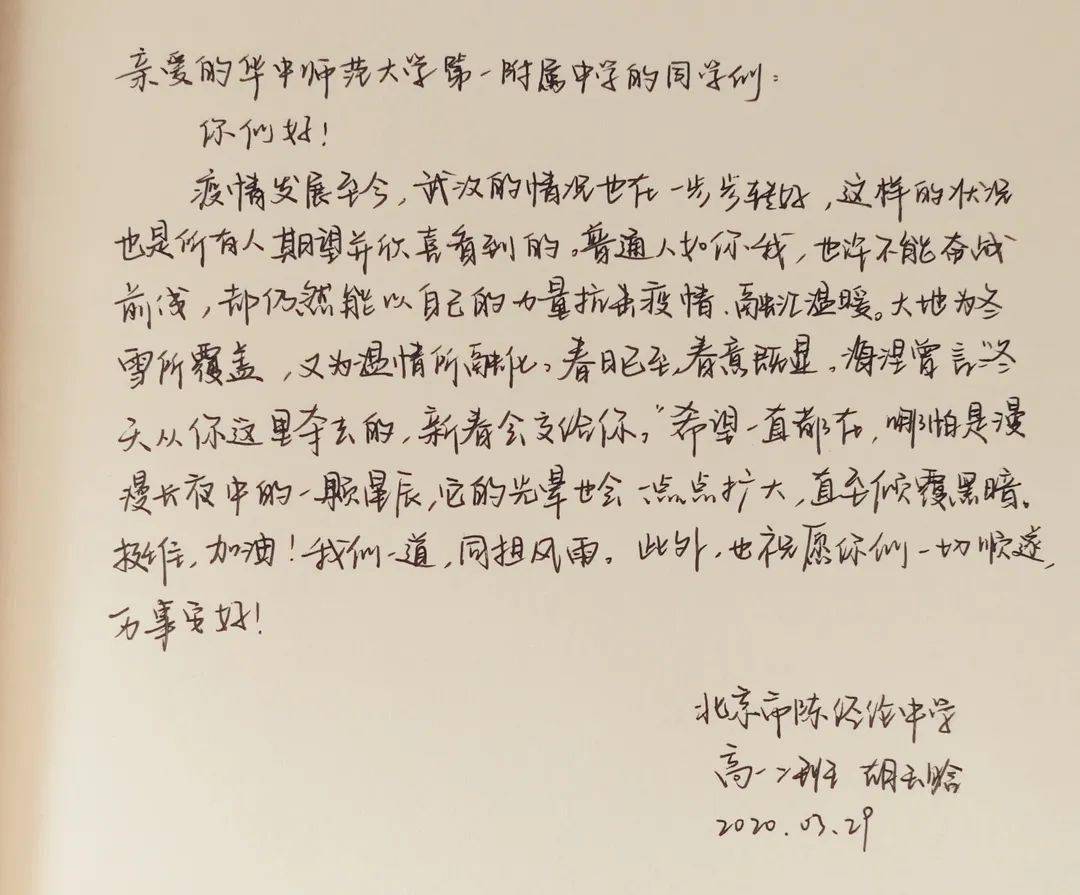 亲爱的华中师范大学第一附属中学的同学们：
你们好！
疫情发展至今，武汉的情况也在一步步转好，这样的状况
也是所有人期望并欣喜看到的。普通人如你我，也许不能奋战
前线，却仍然能以自己的力量抗击疫情、融汇温暖。大地为冬
雪所覆盖，又为温情所融化。春日已至，春意既显。海涅曾言“冬
天从你这里夺去的，新春会交给你。”希望一直都在，哪怕是漫
漫长夜中的一颗星辰，它的光晕也会一点点扩大，直至倾覆黑暗。
挺住，加油！我们一道，同担风雨。此外，也祝愿你们一切顺遂，
万事安好！
北京市陈经纶中学
高一2班 胡玉晗
2020.03.29